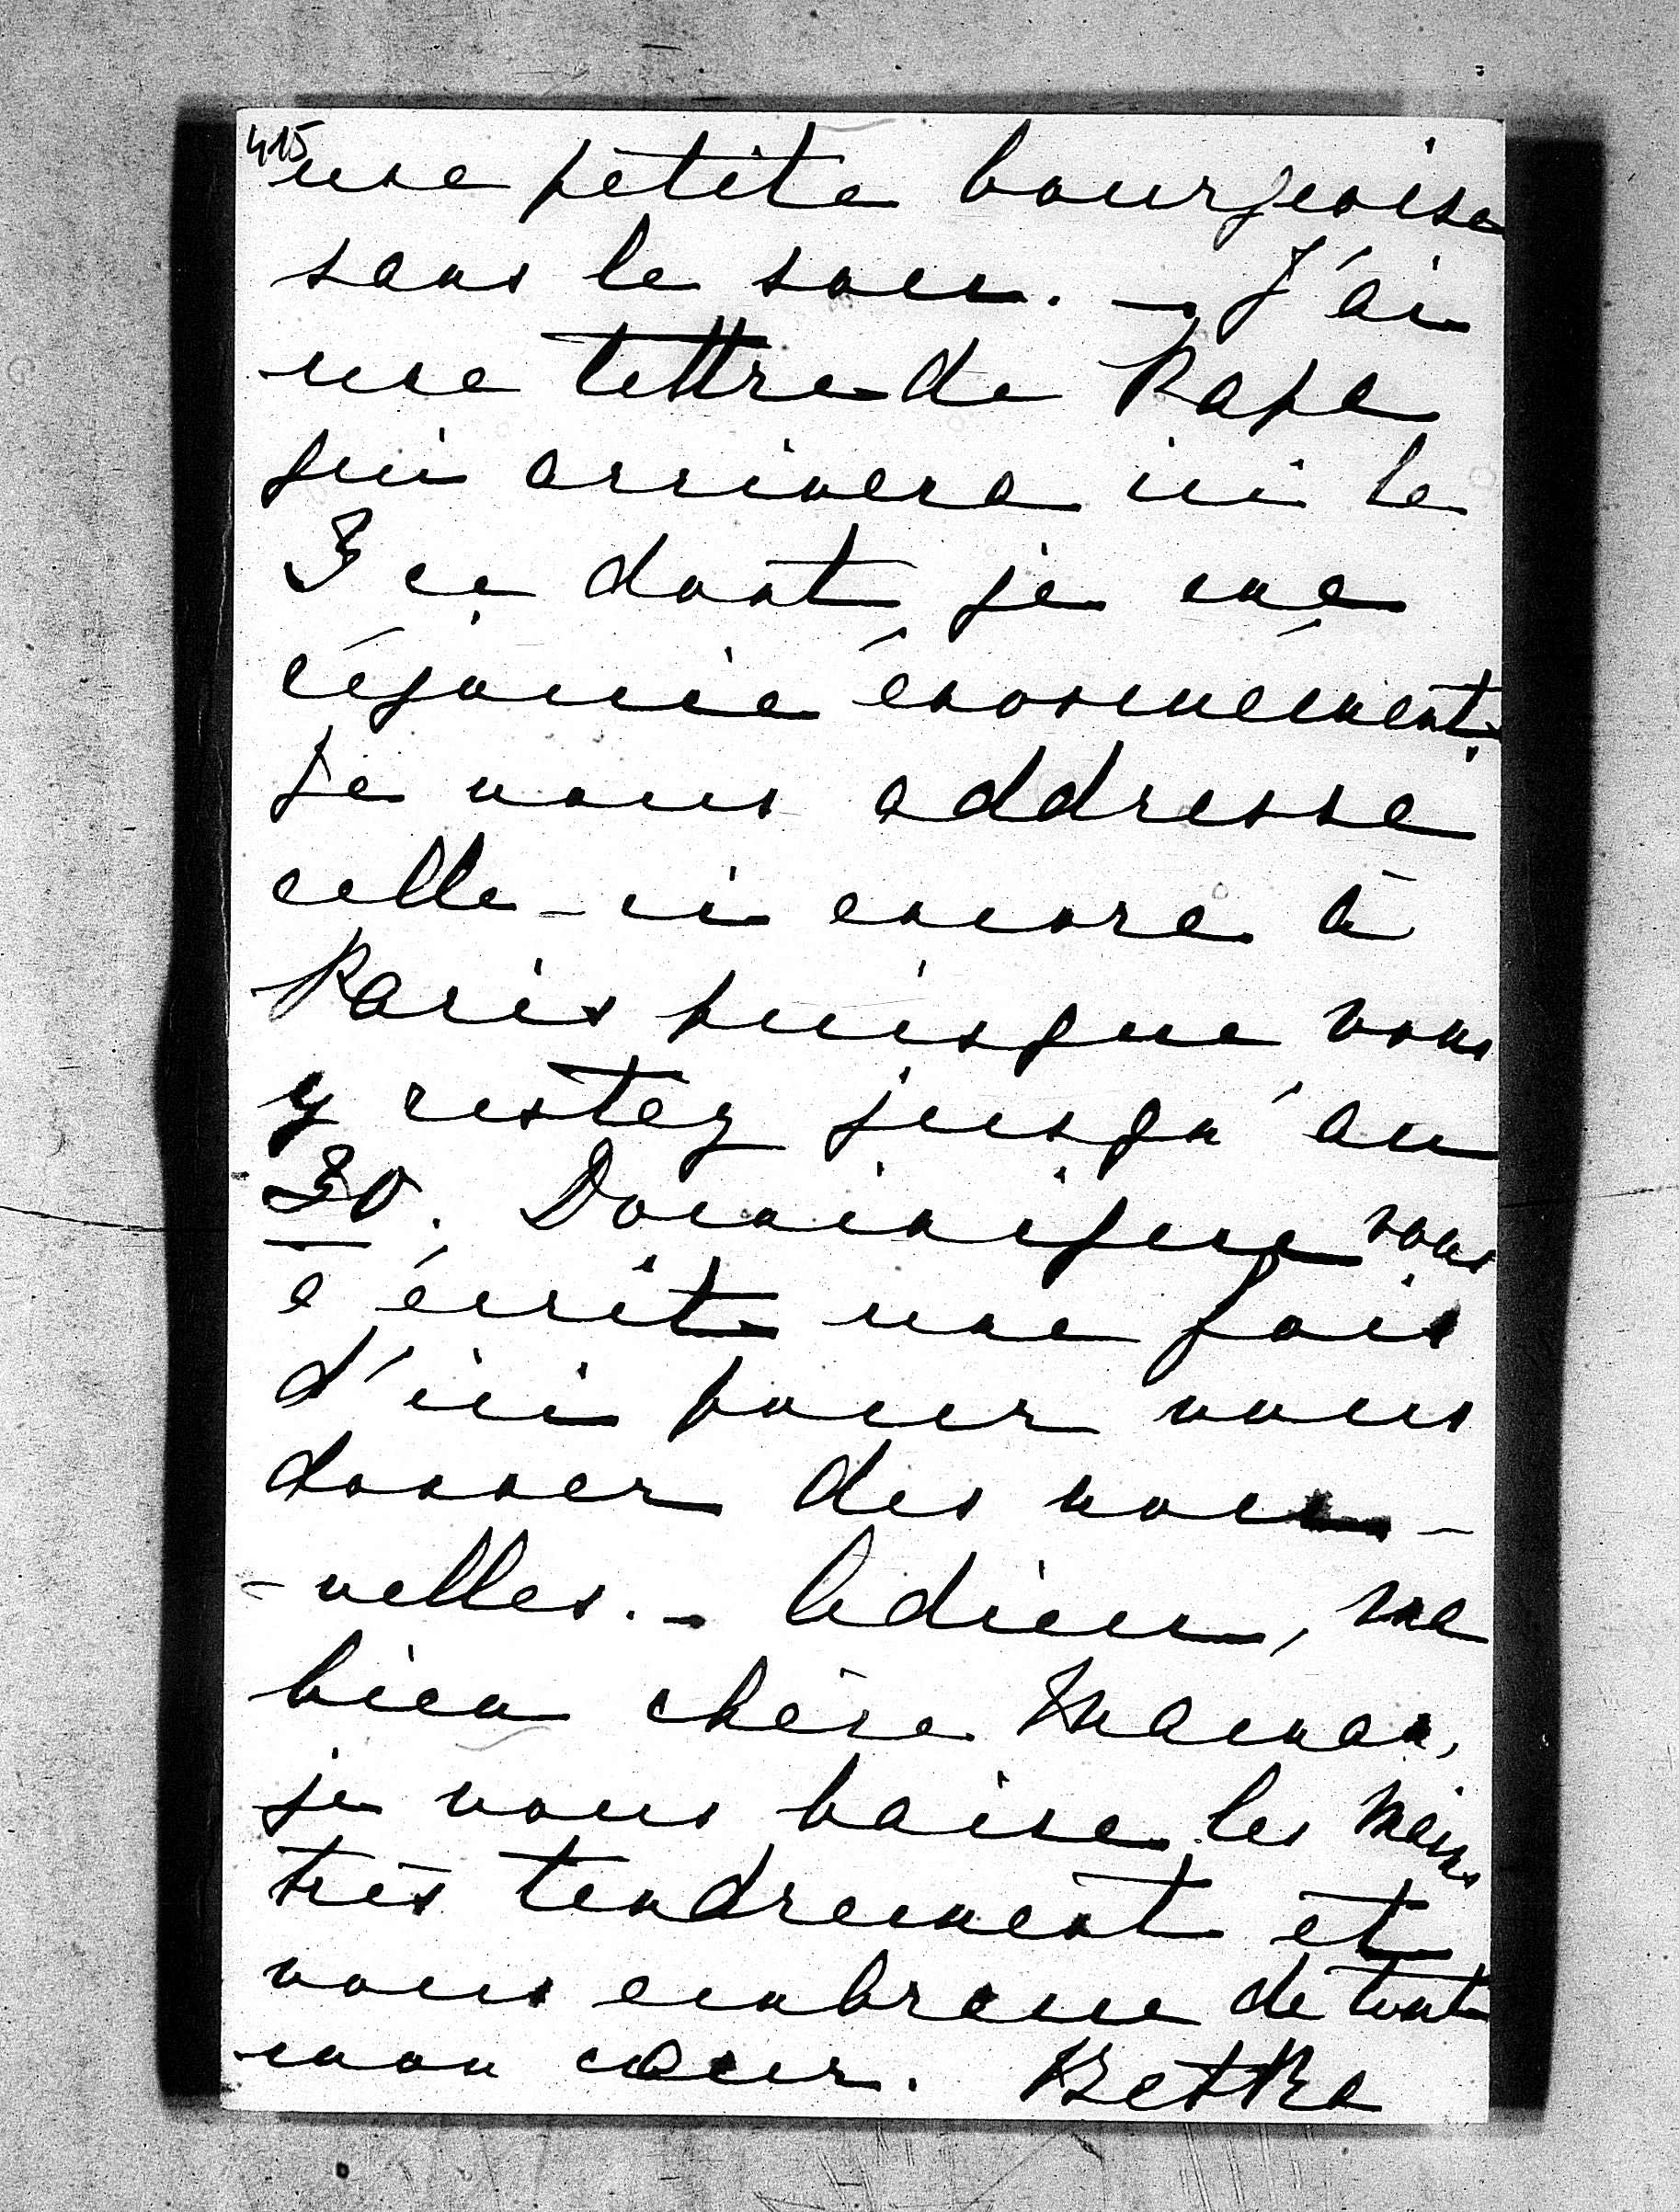 415
une petite bourgeoise
sans le sou. – J'ai
une lettre de Papa
qui arrivera ici le
3 ce dont je me
réjouis énormément.
Je vous addresse
celle-ci encore à
Paris puisque vous
y restez jusqu'au
30. Dominique vous
a écrit une fois
d'ici pour vous
donner des nou-
-velles. – Adieu, ma
bien chère Maman,
je vous baise les mains
très tendrement et
vous embrasse de tout
mon cœur. Betka